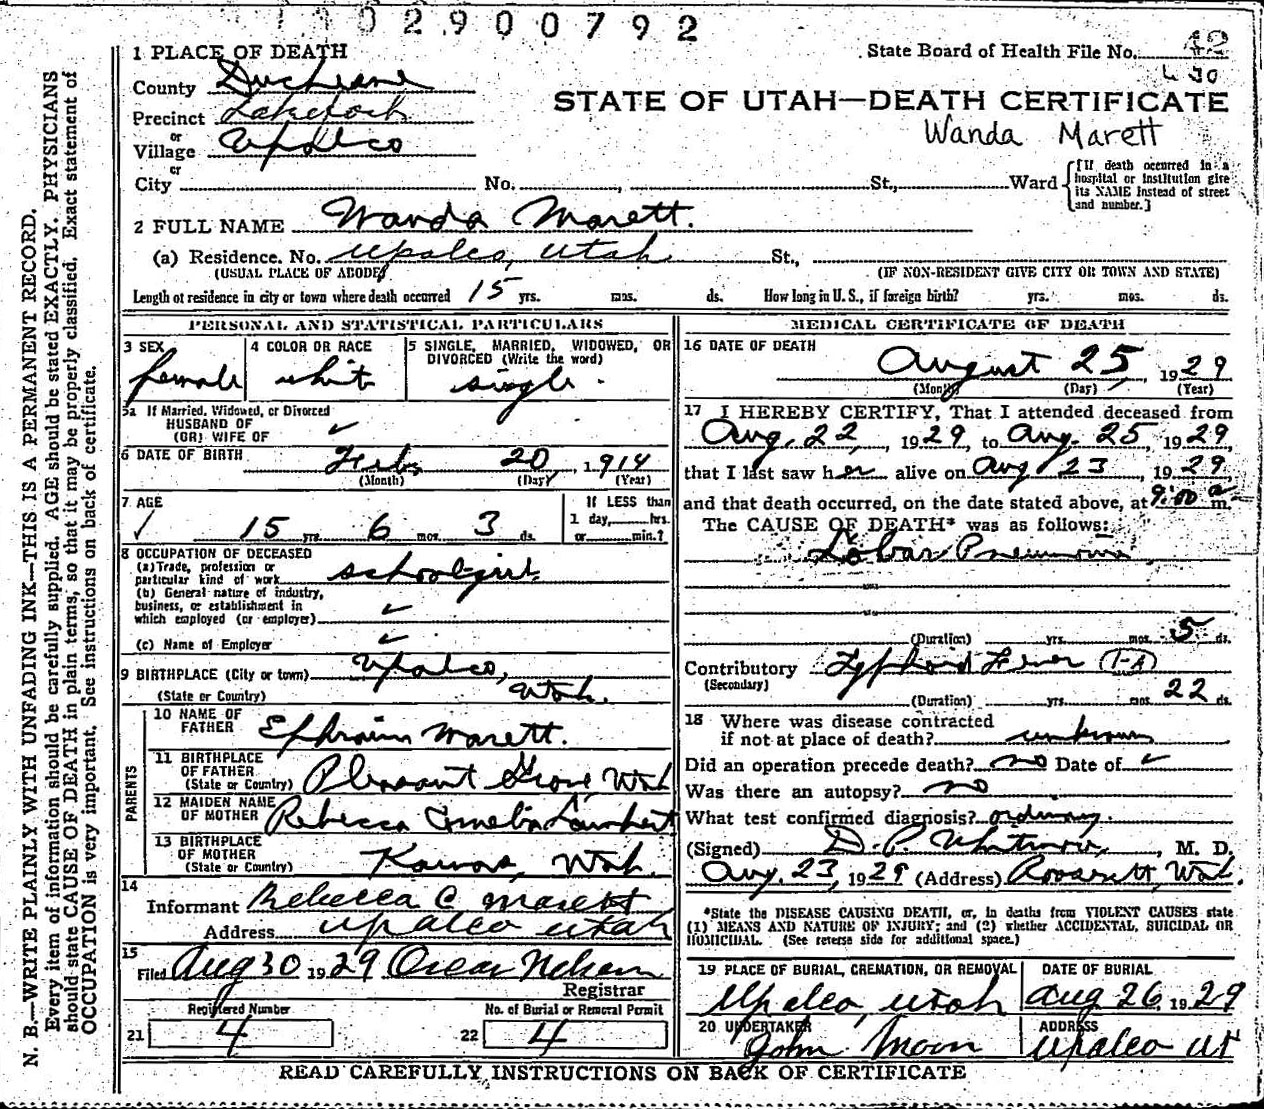 1102900792
1 PLACE OF DEATH
State Board of Health File No. 42
430
County Duchesne
STATE OF UTAH—DEATH CERTIFICATE
Precinct
Wanda Marett
or
Village Upalco
or
City No. , St., Ward {[If death occurred in a hospital or institution give its NAME instead of street and number.]
2 FULL NAME Wanda Marett.
(a) Residence. No. Upalco, Utah St.,
(USUAL PLACE OF ABODE) (IF NON-RESIDENT GIVE CITY OR TOWN AND STATE)
Length of residence in city or town where death occurred 15 yrs. mos. ds. How long in U. S., if foreign birth? yrs. mos. ds.
PERSONAL AND STATISTICAL PARTICULARS
3 SEX 4 COLOR OR RACE 5 SINGLE, MARRIED, WIDOWED, OR
DIVORCED (Write the word)
female white single.
5a If Married, Widowed, or Divorced
HUSBAND OF
(OR) WIFE OF ✓
6 DATE OF BIRTH Feb. 20, 1914
(Month) (Day) (Year)
7 AGE If LESS than
✓ 15 yrs. 6 mos. 3 ds. 1 day, hrs.
or min.?
8 OCCUPATION OF DECEASED
(a) Trade, profession or
particular kind of work schoolgirl.
(b) General nature of industry,
business, or establishment in
which employed (or employer) ✓
(c) Name of Employer ✓
9 BIRTHPLACE (City or town) Upalco,
(State or Country) Utah.
PARENTS
10 NAME OF
FATHER Ephraim Marett.
11 BIRTHPLACE
OF FATHER
(State or Country) Pleasant Grove, Utah
12 MAIDEN NAME
OF MOTHER Rebecca Cornelia Lambert
13 BIRTHPLACE
OF MOTHER
(State or Country) Kamas, Utah.
14
Informant Rebecca C Marett
Address Upalco Utah
15
Filed Aug 30 1929 Oscar Nelson
Registrar
Registered Number No. of Burial or Removal Permit
21 4 22 4
MEDICAL CERTIFICATE OF DEATH
16 DATE OF DEATH
August 25, 1929
(Month) (Day) (Year)
17 I HEREBY CERTIFY, That I attended deceased from
Aug. 22, 1929, to Aug. 25, 1929
that I last saw her alive on Aug 23, 1929,
and that death occurred, on the date stated above, at 9:00 a m.
The CAUSE OF DEATH* was as follows:
Lobar Pneumonia
(Duration) yrs. mos. 5 ds.
Contributory Typhoid Fever (1-A)
(Secondary)
(Duration) yrs. mos. 22 ds.
18 Where was disease contracted
if not at place of death? unknown
Did an operation precede death? no Date of ✓
Was there an autopsy? no
What test confirmed diagnosis? ordinary.
(Signed) D. P. Whitmore, M. D.
Aug. 23, 1929 (Address) Roosevelt, Utah.
*State the DISEASE CAUSING DEATH, or, in deaths from VIOLENT CAUSES state
(1) MEANS AND NATURE OF INJURY; and (2) whether ACCIDENTAL, SUICIDAL OR
HOMICIDAL. (See reverse side for additional space.)
19 PLACE OF BURIAL, CREMATION, OR REMOVAL DATE OF BURIAL
Upalco, Utah Aug 26, 1929
20 UNDERTAKER ADDRESS
John Moon Upalco Ut
READ CAREFULLY INSTRUCTIONS ON BACK OF CERTIFICATE
N. B.—WRITE PLAINLY WITH UNFADING INK—THIS IS A PERMANENT RECORD.
Every item of information should be carefully supplied. AGE should be stated EXACTLY. PHYSICIANS
should state CAUSE OF DEATH in plain terms, so that it may be properly classified. Exact statement of
OCCUPATION is very important. See instructions on back of certificate.